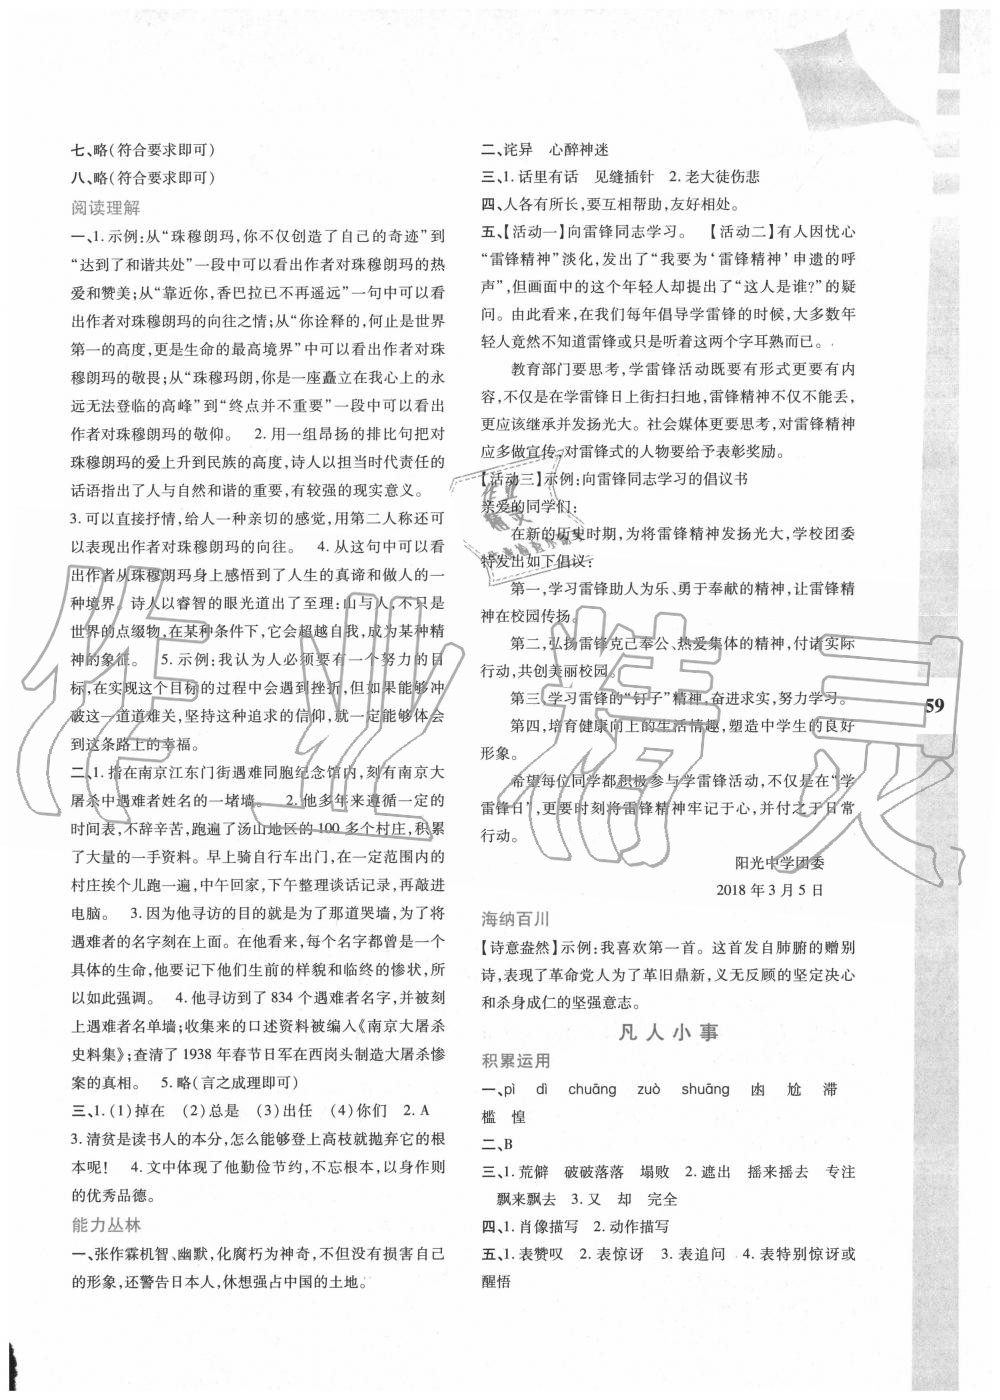 七、略(符合要求即可)
八、略(符合要求即可)
阅读理解
一、1. 示例:从“珠穆朗玛,你不仅创造了自己的奇迹”到
“达到了和谐共处”一段中可以看出作者对珠穆朗玛的热
爱和赞美;从“靠近你,香巴拉已不再遥远”一句中可以看
出作者对珠穆朗玛的向往之情;从“你诠释的,何止是世界
第一的高度,更是生命的最高境界”中可以看出作者对珠
穆朗玛的敬畏;从“珠穆玛朗,你是一座矗立在我心上的永
远无法登临的高峰”到“终点并不重要”一段可以看出
作者对珠穆朗玛的敬仰。 2. 用一组昂扬的排比句把对
珠穆朗玛的爱上升到民族的高度,诗人以担当时代责任的
话语指出了人与自然和谐的重要,有较强的现实意义。
3. 可以直接抒情,给人一种亲切的感觉,用第二人称还可
以表现出作者对珠穆朗玛的向往。 4. 从这句中可以看
出作者从珠穆朗玛身上感悟到了人生的真谛和做人的一
种境界。诗人以睿智的眼光道出了至理:山与人,不只是
世界的点缀物,在某种条件下,它会超越自我,成为某种精
神的象征。 5. 示例:我认为人必须要有一个努力的目
标,在实现这个目标的过程中会遇到挫折,但如果能够冲
破这一道道难关,坚持这种追求的信仰,就一定能够体会
到这条路上的幸福。
二、1. 指在南京江东门街遇难同胞纪念馆内,刻有南京大
屠杀中遇难者姓名的一堵墙。 2. 他多年来遵循一定的
时间表,不辞辛苦,跑遍了汤山地区的 100 多个村庄,积累
了大量的一手资料。早上骑自行车出门,在一定范围内的
村庄挨个儿跑一遍,中午回家,下午整理谈话记录,再敲进
电脑。 3. 因为他寻访的目的就是为了那道哭墙,为了把
遇难者的名字刻在上面。在他看来,每个名字都曾是一个
具体的生命,他要记下他们生前的样貌和临终的惨状,所
以如此强调。 4. 他寻访到了 834 个遇难者名字,并被刻
上遇难者名单墙;收集来的口述资料被编入《南京大屠杀
史料集》;查清了 1938 年春节日军在西岗头制造大屠杀惨
案的真相。 5. 略(言之成理即可)
三、1. (1)掉在 (2)总是 (3)出任 (4)你们 2. A
3. 清贫是读书人的本分,怎么能够登上高枝就抛弃它的根
本呢! 4. 文中体现了他勤俭节约,不忘根本,以身作则
的优秀品德。
能力丛林
一、张作霖机智、幽默,化腐朽为神奇,不但没有损害自己
的形象,还警告日本人,休想强占中国的土地。
二、诧异 心醉神迷
三、1. 话里有话 见缝插针 2. 老大徒伤悲
四、人各有所长,要互相帮助,友好相处。
五、【活动一】向雷锋同志学习。 【活动二】有人因忧心
“雷锋精神”淡化,发出了“我要为‘雷锋精神’申遗的呼
声”,但画面中的这个年轻人却提出了“这人是谁?”的疑
问。由此看来,在我们每年倡导学雷锋的时候,大多数年
轻人竟然不知道雷锋或只是听着这两个字耳熟而已。
教育部门要思考,学雷锋活动既要有形式更要有内
容,不仅是在学雷锋日上街扫扫地,雷锋精神不仅不能丢,
更应该继承并发扬光大。社会媒体更要思考,对雷锋精神
应多做宣传,对雷锋式的人物要给予表彰奖励。
【活动三】示例:向雷锋同志学习的倡议书
亲爱的同学们:
在新的历史时期,为将雷锋精神发扬光大,学校团委
特发出如下倡议:
第一,学习雷锋助人为乐、勇于奉献的精神,让雷锋精
神在校园传扬。
第二,弘扬雷锋克己奉公、热爱集体的精神,付诸实际
行动,共创美丽校园。
第三,学习雷锋的“钉子”精神,奋进求实,努力学习。
第四,培育健康向上的生活情趣,塑造中学生的良好
形象。
希望每位同学都积极参与学雷锋活动,不仅是在“学
雷锋日”,更要时刻将雷锋精神牢记于心,并付之于日常
行动。
阳光中学团委
2018 年 3 月 5 日
海纳百川
【诗意盎然】示例:我喜欢第一首。这首发自肺腑的赠别
诗,表现了革命党人为了革旧鼎新,义无反顾的坚定决心
和杀身成仁的坚强意志。
凡人小事
积累运用
一、pì dì chuāng zuò shuāng 凼 尬 滞
槛 惶
二、B
三、1. 荒僻 破破落落 塌败 2. 遮出 摇来摇去 专注
飘来飘去 3. 又 却 完全
四、1. 肖像描写 2. 动作描写
五、1. 表赞叹 2. 表惊讶 3. 表追问 4. 表特别惊讶或
醒悟
59
作业精灵
作业
精灵